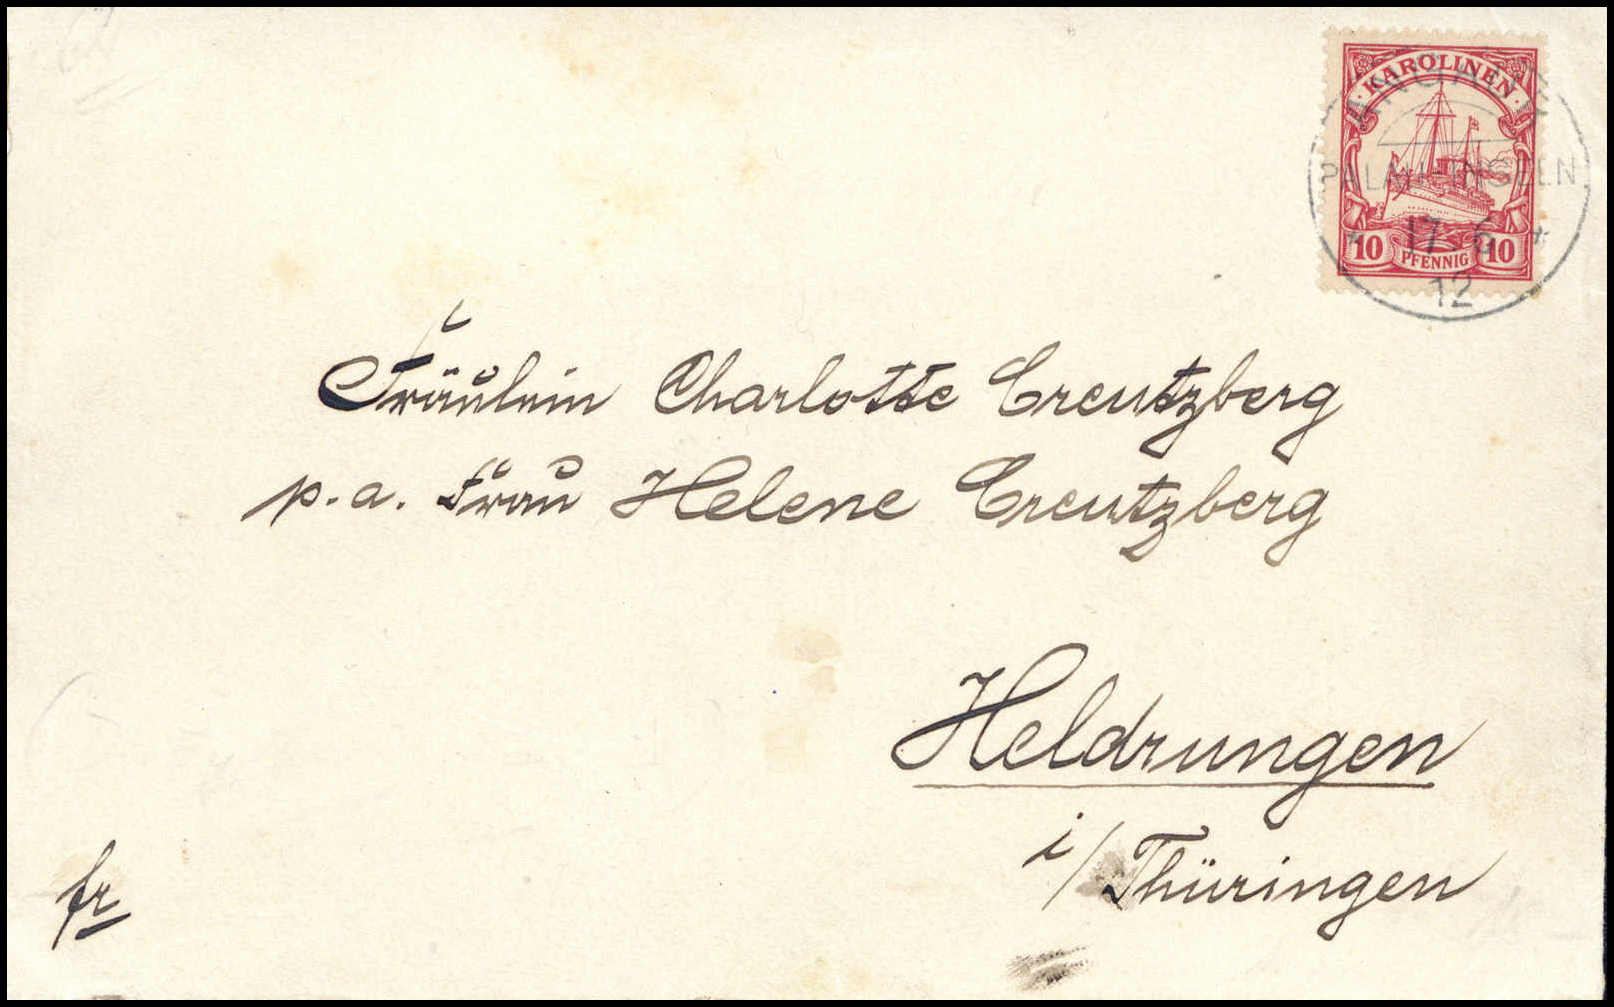 KAROLINEN
ANGAUR
PALAU-INSELN
* 17 6 *
12
10 PFENNIG 10
Fräulein Charlotte Creutzberg
p.a. Frau Helene Creutzberg
Heldrungen
i/Thüringen
fr